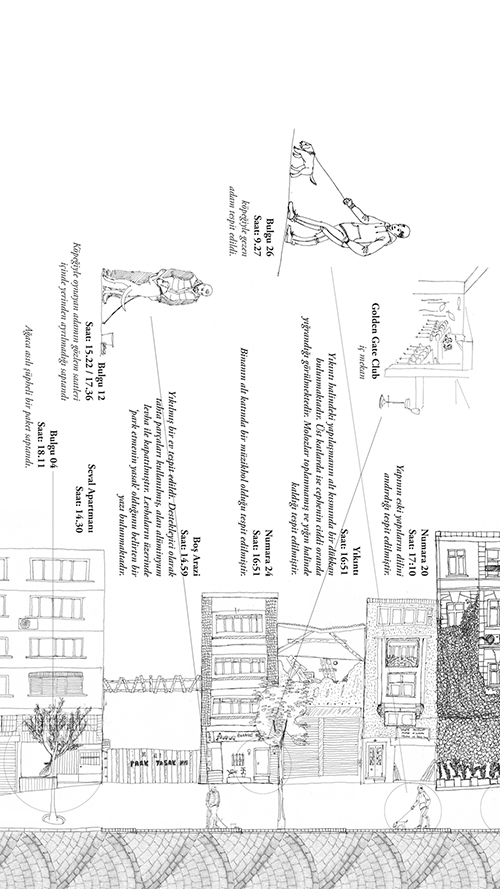 Numara 20
Saat: 17:10
Yapının eski yapıların dilini
andırdığı tespit edilmiştir.
Golden Gate Club
iç mekan
Yıkıntı
Saat: 16:51
Yıkıntı halindeki yapılaşmanın alt kısmında bir dükkan
bulunmaktadır. Üst katlarda ise cephenin ciddi oranda
yıprandığı görülmektedir. Molozlar toplanmamış ve yığın halinde
kaldığı tespit edilmiştir.
Bulgu 26
Saat: 9.27
köpeğiyle gezen
adam tespit edildi.
Numara 24
Saat: 16:51
Binanın alt katında bir müzikhol olduğu tespit edilmiştir.
Boş Arazi
Saat: 14.59
Yıkılmış bir ev tespit edildi. Destekleyici olarak
tahta parçaları kullanılmış, alan alüminyum
levha ile kapatılmıştır. Levhaların üzerinde
'park etmenin yasak' olduğunu belirten bir
yazı bulunmaktadır.
Bulgu 12
Saat: 15.22 / 17.36
Köpeğiyle oynayan adamın gözlem saatleri
içinde yerinden ayrılmadığı saptandı
Seval Apartmanı
Saat: 14.30
Bulgu 04
Saat: 18.11
Ağaca asılı şüpheli bir paket saptandı.
PARK YASAK